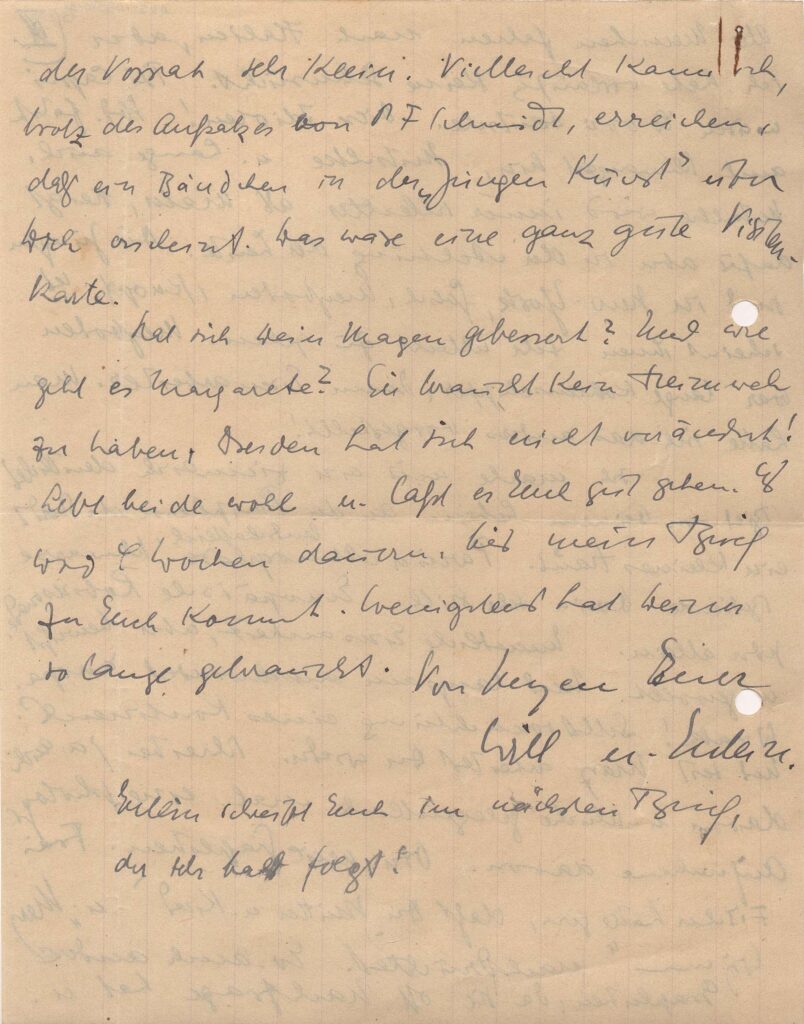 der Vorrat sehr klein. Vielleicht kann ich,
trotz des Aufsatzes von P F Schmidt, erreichen,
daß ein Bändchen in der „Jungen Kunst" über
Dich erscheint. Das wäre eine ganz gute Visiten-
karte.
Hat sich Dein Magen gebessert? Und wie
geht es Margarete? Sie braucht kein Heimweh
zu haben, Dresden hat sich nicht verändert!
Lebt beide wohl u. laßt es Euch gut gehen. Es
wird 4 Wochen dauern, bis mein Brief
zu Euch kommt. Wenigstens hat Deiner
so lange gebraucht. Von Herzen Euer
Will u.
schreibt Euch im nächsten Brief,
der sehr bald folgt!